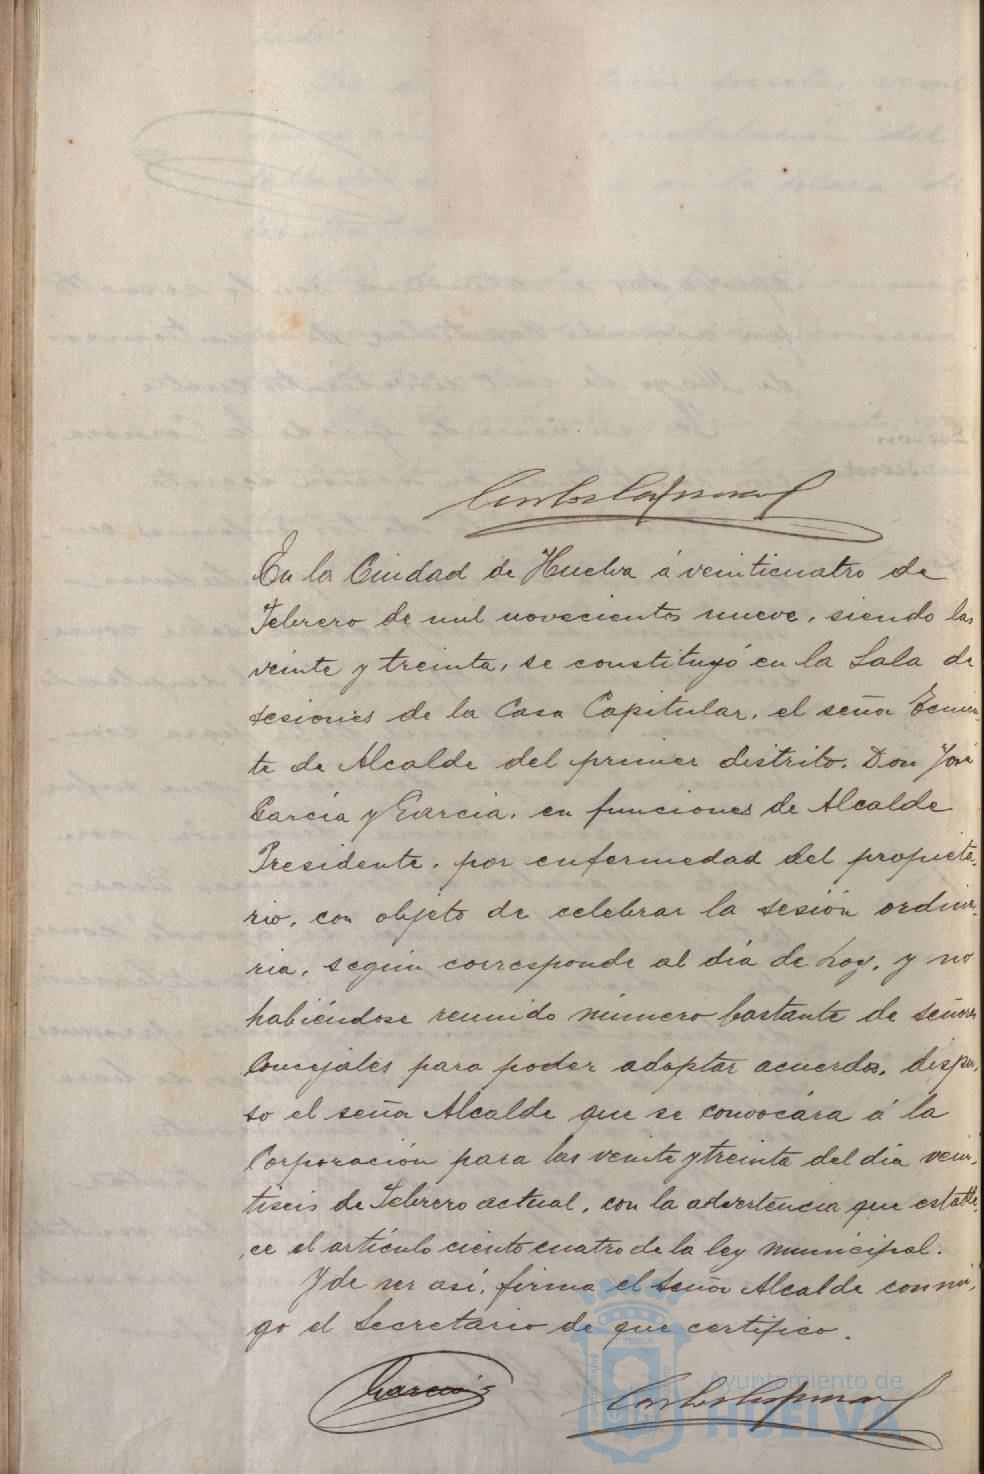 En la Ciudad de Huelva á veinticuatro de
Febrero de mil novecientos nueve, siendo las
veinte y treinta, se constituyó en la Sala de
sesiones de la Casa Capitular, el señor Tenien-
te de Alcalde del primer distrito, Don José
García y García, en funciones de Alcalde
Presidente, por enfermedad del propieta-
rio, con objeto de celebrar la sesión ordina-
ria, según corresponde al día de hoy, y no
habiéndose reunido número bastante de señores
Concejales para poder adoptar acuerdos, dispu-
so el señor Alcalde que se convocára á la
Corporación para las veinte y treinta del día vein-
tiseis de Febrero actual, con la advertencia que estable-
ce el artículo ciento cuatro de la ley municipal.
Y de ser así, firma el señor Alcalde conmi-
go el Secretario de que certifico.
García
Ayuntamiento de
HUELVA